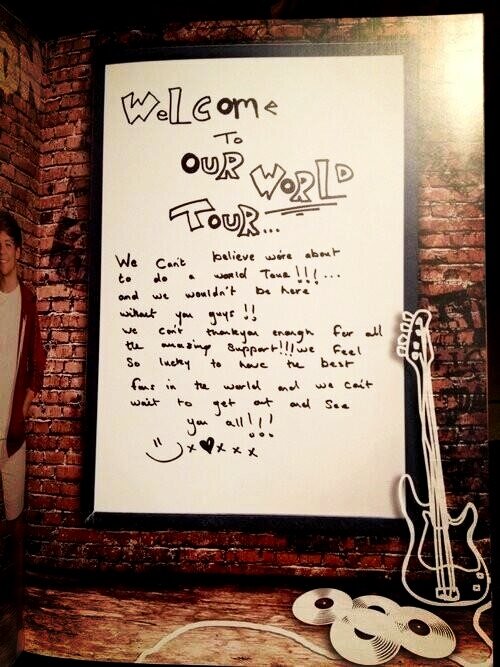 WeLcome
To
OUR WORLD
TOUR...
We Can't believe we're about
to do a world Tour!!!...
and we wouldn't be here
without you guys!!
we can't thankyou enough for all
the amazing support!!!we feel
So lucky to have the best
fans in the world and we can't
wait to get out and see
you all!!!...
x♥xxxx